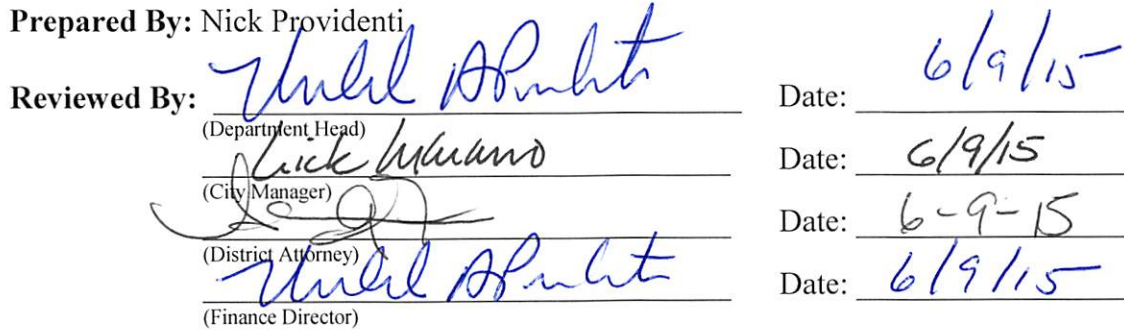 Prepared By: Nick Providenti
Reviewed By: Date: 6/9/15
(Department Head)
Date: 6/9/15
(City Manager)
Date: 6-9-15
(District Attorney)
Date: 6/9/15
(Finance Director)